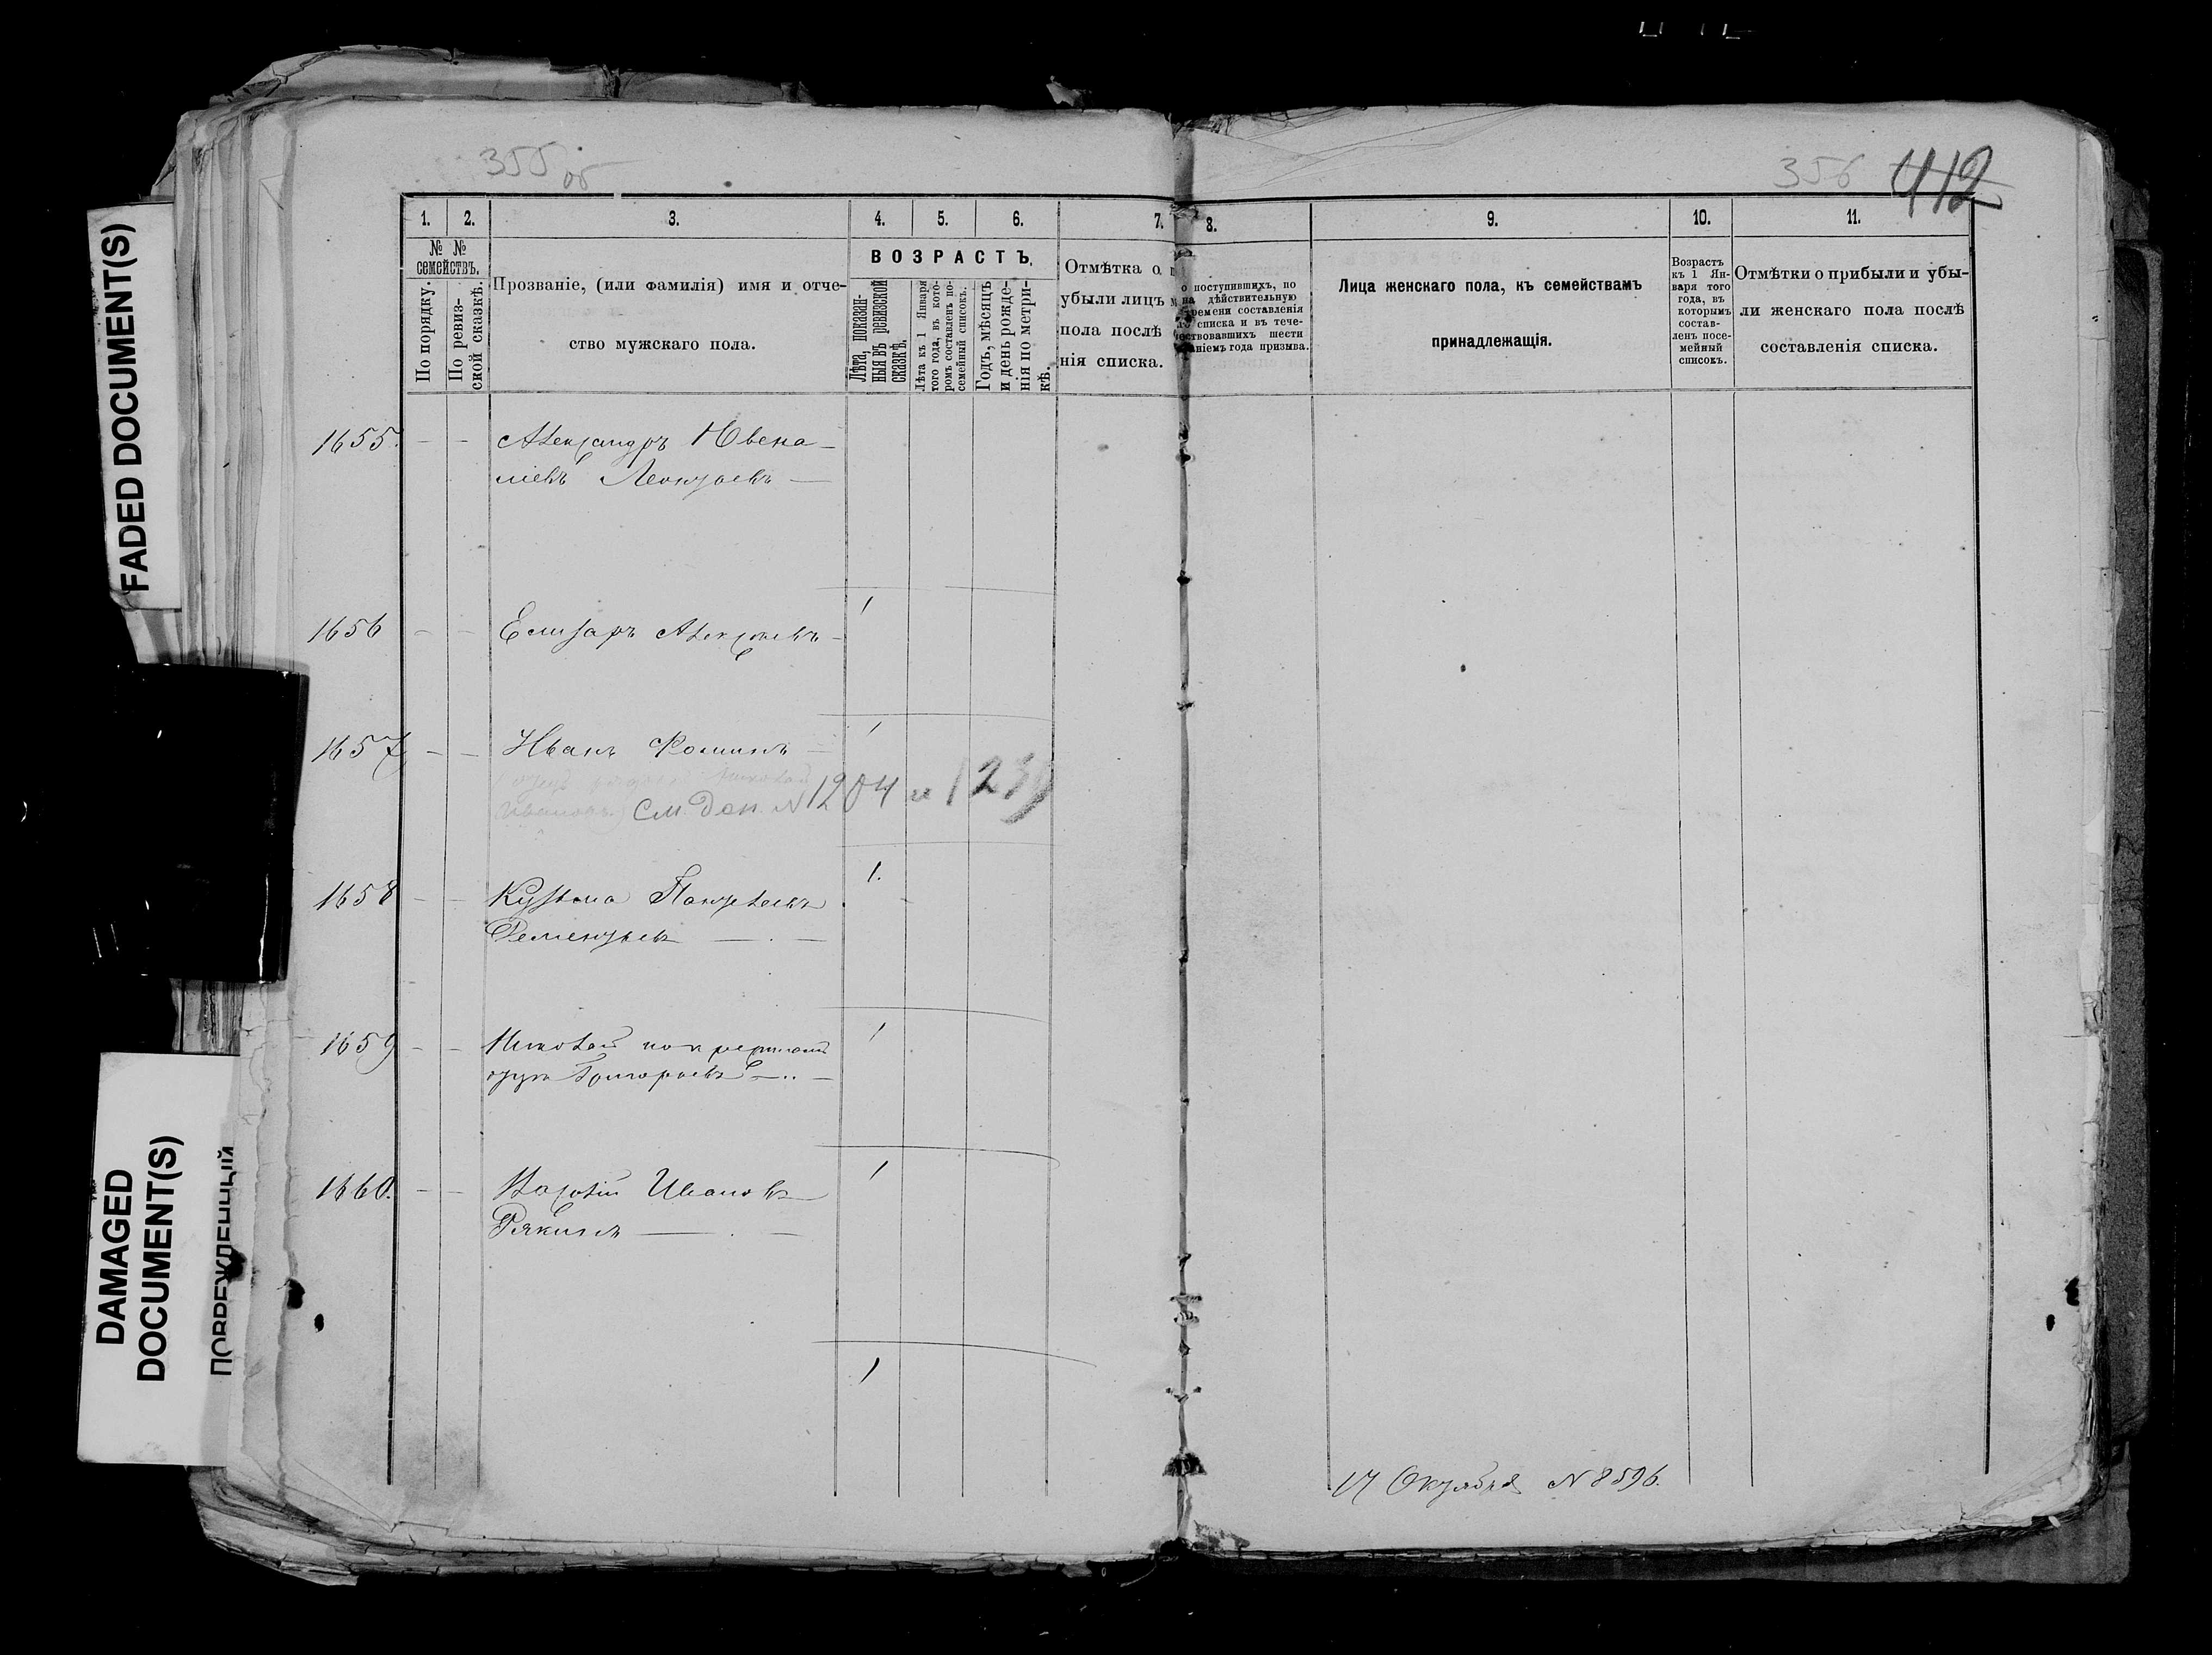 355 об
356 412
1. 2. 3. 4. 5. 6. 7. 8. 9. 10. 11.
№ № семействъ.
По порядку.
По ревизской сказкѣ.
Прозваніе, (или фамилія) имя и отче-
ство мужскаго пола.
ВОЗРАСТЪ.
Лѣта, показан-
ныя въ ревизской
сказкѣ.
Лѣта къ 1 Января
того года, въ кото-
ромъ составленъ по-
семейный списокъ.
Годъ, мѣсяцъ
и день рожде-
нія по метри-
кѣ.
Отмѣтка о
убыли лицъ
пола послѣ
нія списка.
о поступившихъ, по
на дѣйствительную
времени составленія
списка и въ тече-
ествовавшихъ шести
ніемъ года призыва.
Лица женскаго пола, къ семействамъ
принадлежащія.
Возрастъ
къ 1 Ян-
варя того
года, въ
которымъ
состав-
ленъ посе-
мейный
списокъ.
Отмѣтки о прибыли и убы-
ли женскаго пола послѣ
составленія списка.
1655. - - Александръ Ювена-
ліевъ Леонтьевъ —
1
1656 - - Елизаръ Алексѣевъ -
1
1657 - - Иванъ Фоминъ —
Николай
Ивановъ) См. доп. № 1204 и 123
1.
1658 - - Кузьма Пантелеевъ
Дементьевъ — . —
1
1659 - - Николай по крестному
отцу Григорьевъ — .. —
1
1660. - - Иванов
— . —
1
17 Октября № 8596.
FADED DOCUMENT(S)
DAMAGED
DOCUMENT(S)
ПОВРЕЖДЕННЫЙ